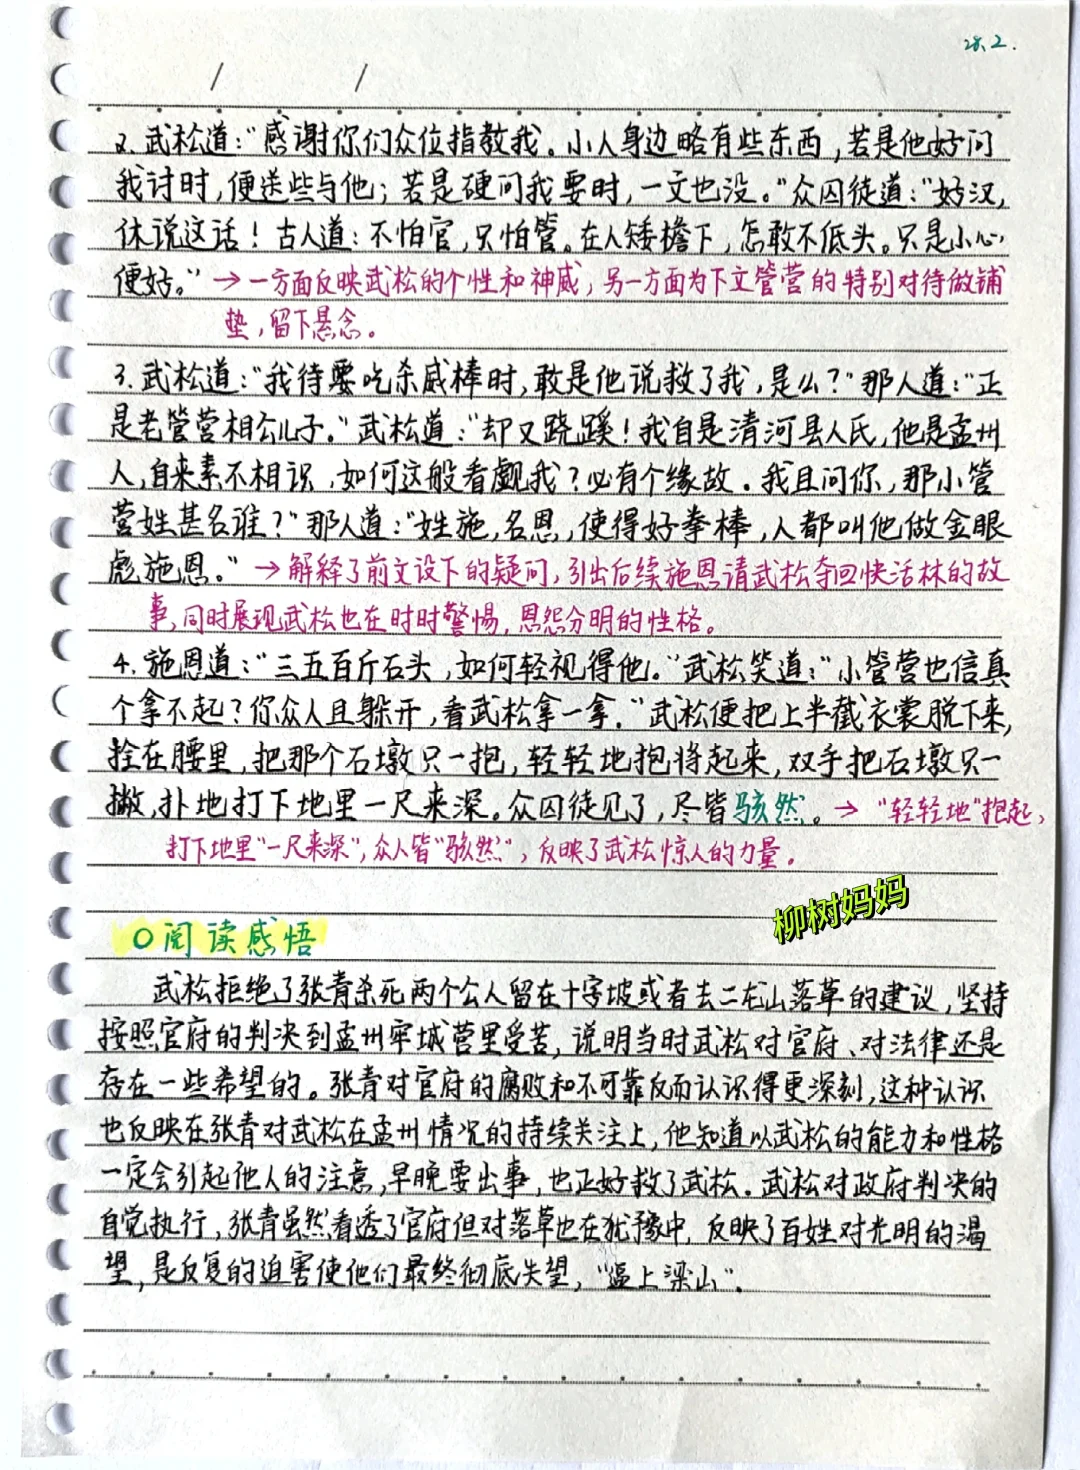 28.2.
2. 武松道:"感谢你们众位指教我。小人身边略有些东西,若是他好问
我讨时,便送些与他;若是硬问我要时,一文也没。"众囚徒道:"好汉,
休说这话!古人道:不怕官,只怕管。在人矮檐下,怎敢不低头。只是小心
便好。"→一方面反映武松的个性和神威,另一方面为下文管营的特别对待做铺
垫,留下悬念。
3. 武松道:"我待要吃杀威棒时,敢是他说救了我,是么?"那人道:"正
是老管营相公儿子。"武松道:"却又跷蹊!我自是清河县人氏,他是孟州
人,自来素不相识,如何这般看觑我?必有个缘故。我且问你,那小管
营姓甚名谁?"那人道:"姓施,名恩,使得好拳棒,人都叫他做金眼
彪施恩。"→解释了前文设下的疑问,引出后续施恩请武松夺回快活林的故
事,同时展现武松也在时时警惕,恩怨分明的性格。
4. 施恩道:"三五百斤石头,如何轻视得他。"武松笑道:"小管营也信真
个拿不起?你众人且躲开,看武松拿一拿。"武松便把上半截衣裳脱下来,
拴在腰里,把那个石墩只一抱,轻轻地抱将起来,双手把石墩只一
撇,扑地打下地里一尺来深。众囚徒见了,尽皆骇然。→"轻轻地"抱起,
打下地里"一尺来深",众人皆"骇然",反映了武松惊人的力量。
柳树妈妈
○阅读感悟
武松拒绝了张青杀死两个公人留在十字坡或者去二龙山落草的建议,坚持
按照官府的判决到孟州牢城营里受苦,说明当时武松对官府、对法律还是
存在一些希望的。张青对官府的腐败和不可靠反而认识得更深刻,这种认识
也反映在张青对武松在孟州情况的持续关注上,他知道以武松的能力和性格
一定会引起他人的注意,早晚要出事,也正好救了武松。武松对政府判决的
自觉执行,张青虽然看透了官府但对落草也在犹豫中,反映了百姓对光明的渴
望,是反复的迫害使他们最终彻底失望,"逼上梁山"。